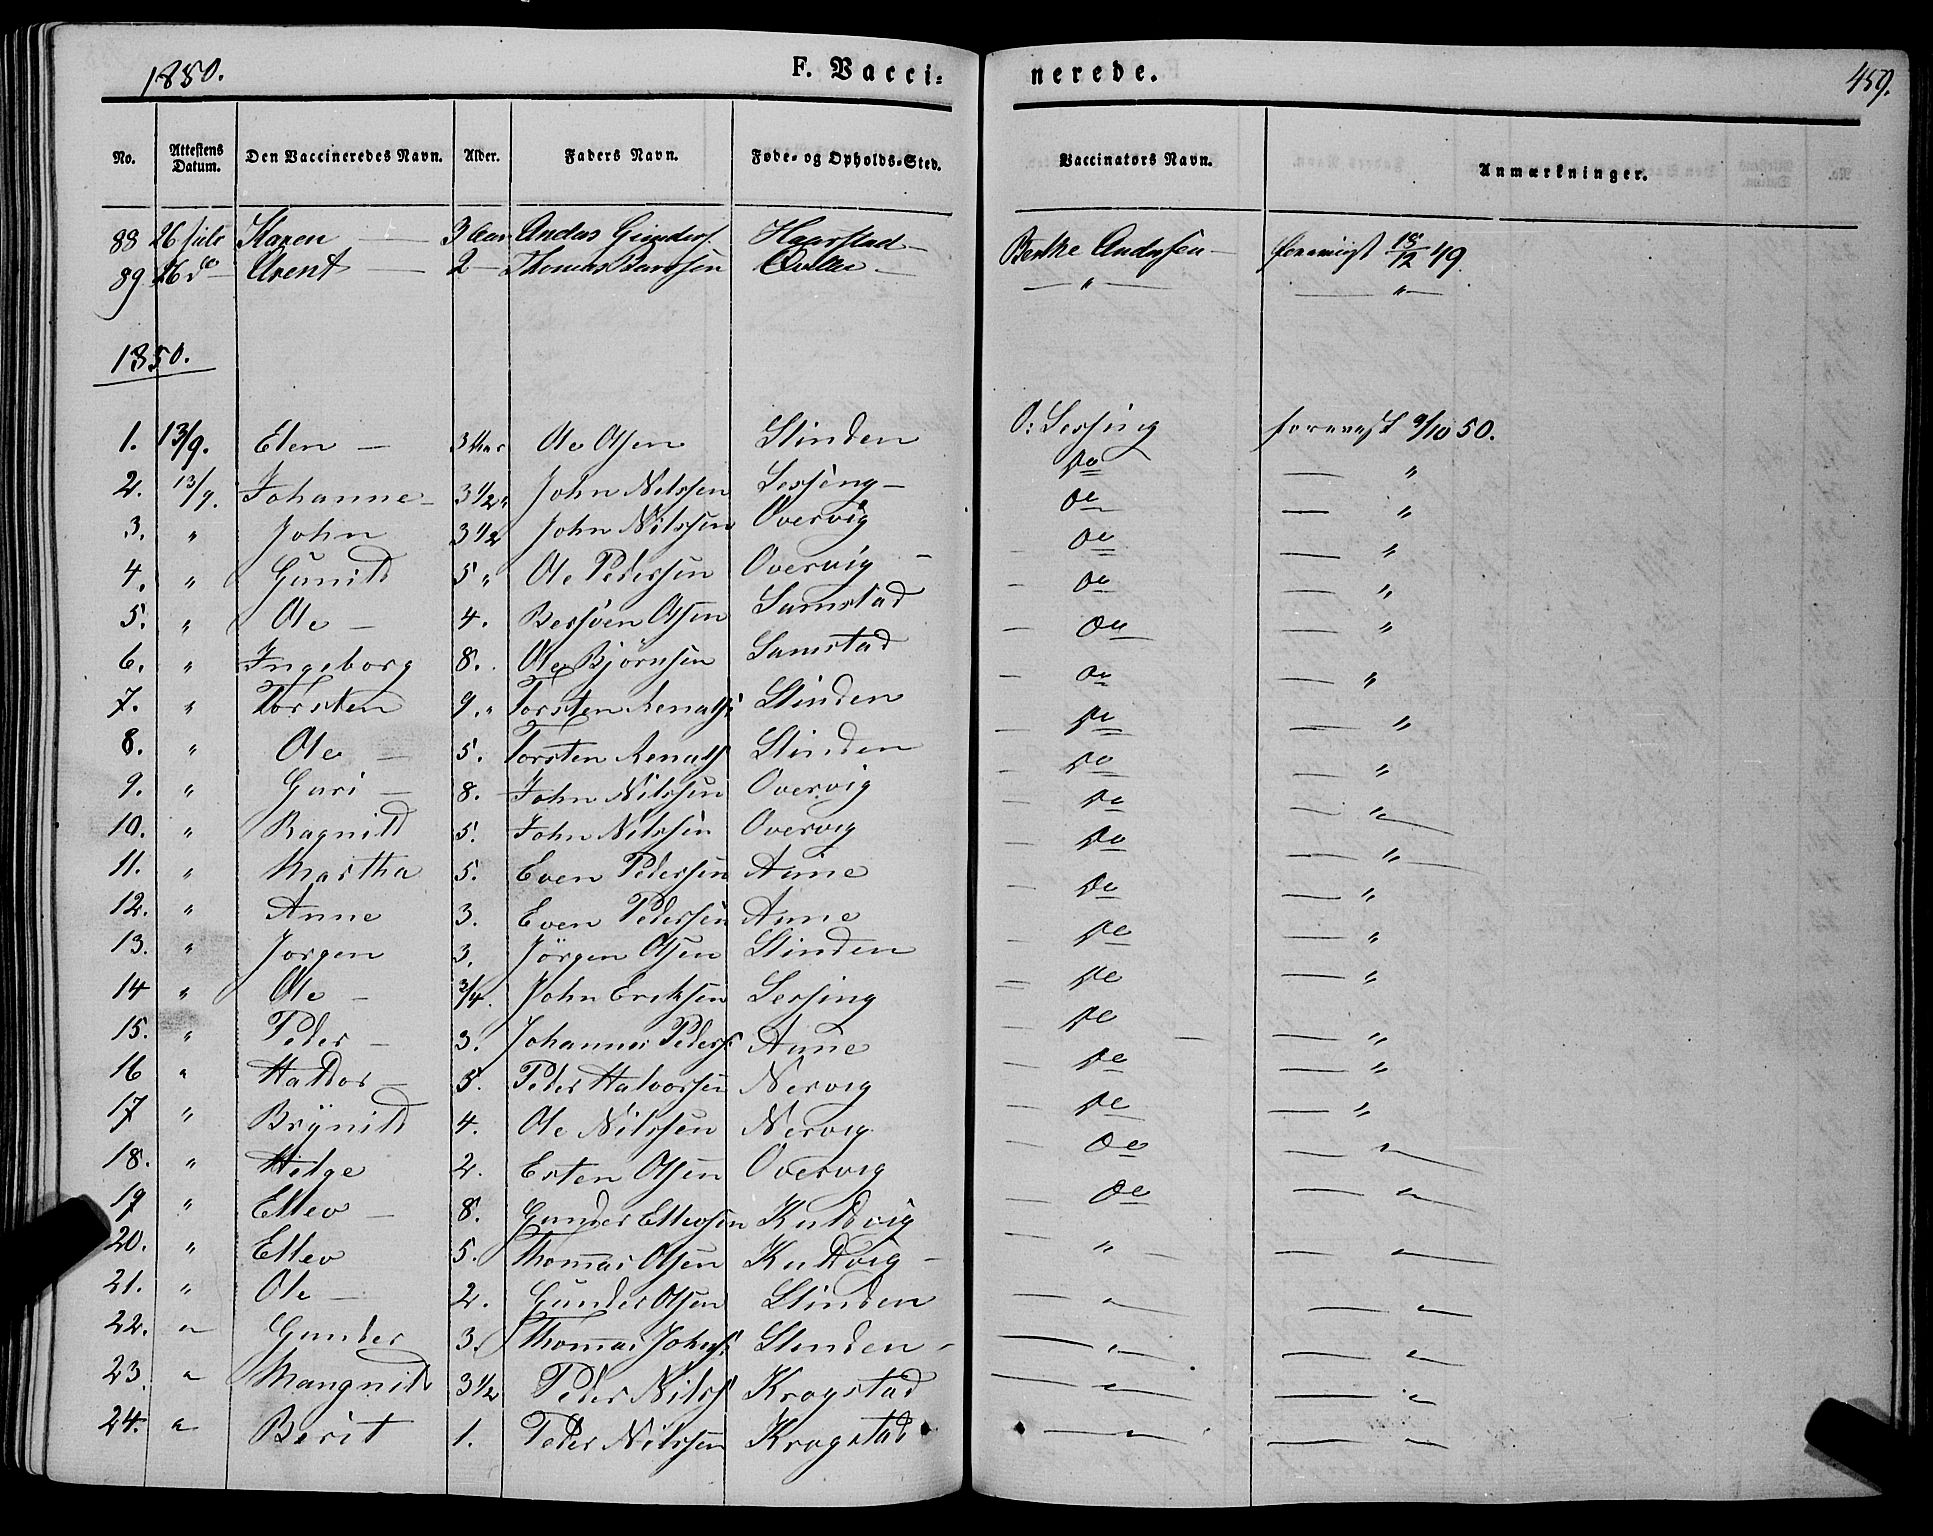 1850. F. Vacci= nerede. 459.
No. Attestens Datum. Den Vaccineredes Navn. Alder. Faders Navn. Føde- og Opholds-Sted. Vaccinators Navn. Anmærkninger.
88 26 Karen — 3 Aar Haarstad — Andersen — foreviist 18/12 49.
89 26 do Arent — 2 — Thomas — — " — — " —
1850.
1. 13/9. Elen — 3 Aar Ole Olsen Stinden O: Lessing 9/10 50.
2. 13/9. Johanne — 3 1/2 " John Nilssen Lessing — do — "
3. " John 3 1/2 John Nilssen Overvig do — "
4. " Gunild 5 " Ole Pedersen Overvig — do — "
5. " Ole — 4. Olsen Samstad do — "
6. " Ingeborg 8. Ole Bjørnsen Samstad do — "
7. " Torsten 9. " Torsten Stinden do — "
8. " Ole — 5. Torsten Stinden do — "
9. " Guri — 8. John Nilssen Overvig do — "
10. " Ragnild 5. John Nilssen Overvig do — "
11. " Martha 5. Even Pedersen Aune do — "
12. " Anne 3. Even Pedersen Aune do — "
13. " Jørgen 3. Jörgen Olsen Stinden do — "
14 " Ole — 3/4. John Eriksen Lessing do — "
15. " Peder — 3. Johannes Peders: Aune do — "
16 " Haldor — 5. Peder Halvorsen Nervig do — "
17 " Brÿnild 4. Ole Nilssen Nervig do — "
18. " Helge 2. Esten Olsen Overvig do — "
19 " Ellev — 8. Gunder Ellevsen Kuldvig do — "
20. " Ellev 5. Thomas Olsen Kuldvig — " — — "
21. " Ole — 2. Gunder Olsen Stinden — " — — "
22. " Gunder 3. Thomas Johns: Stinden — — " — — "
23. " Mangnild 3 1/2 Peder Nilss: Krogstad — " — "
24. " Berit 1. Peder Nilssen Krogstad — " — — "